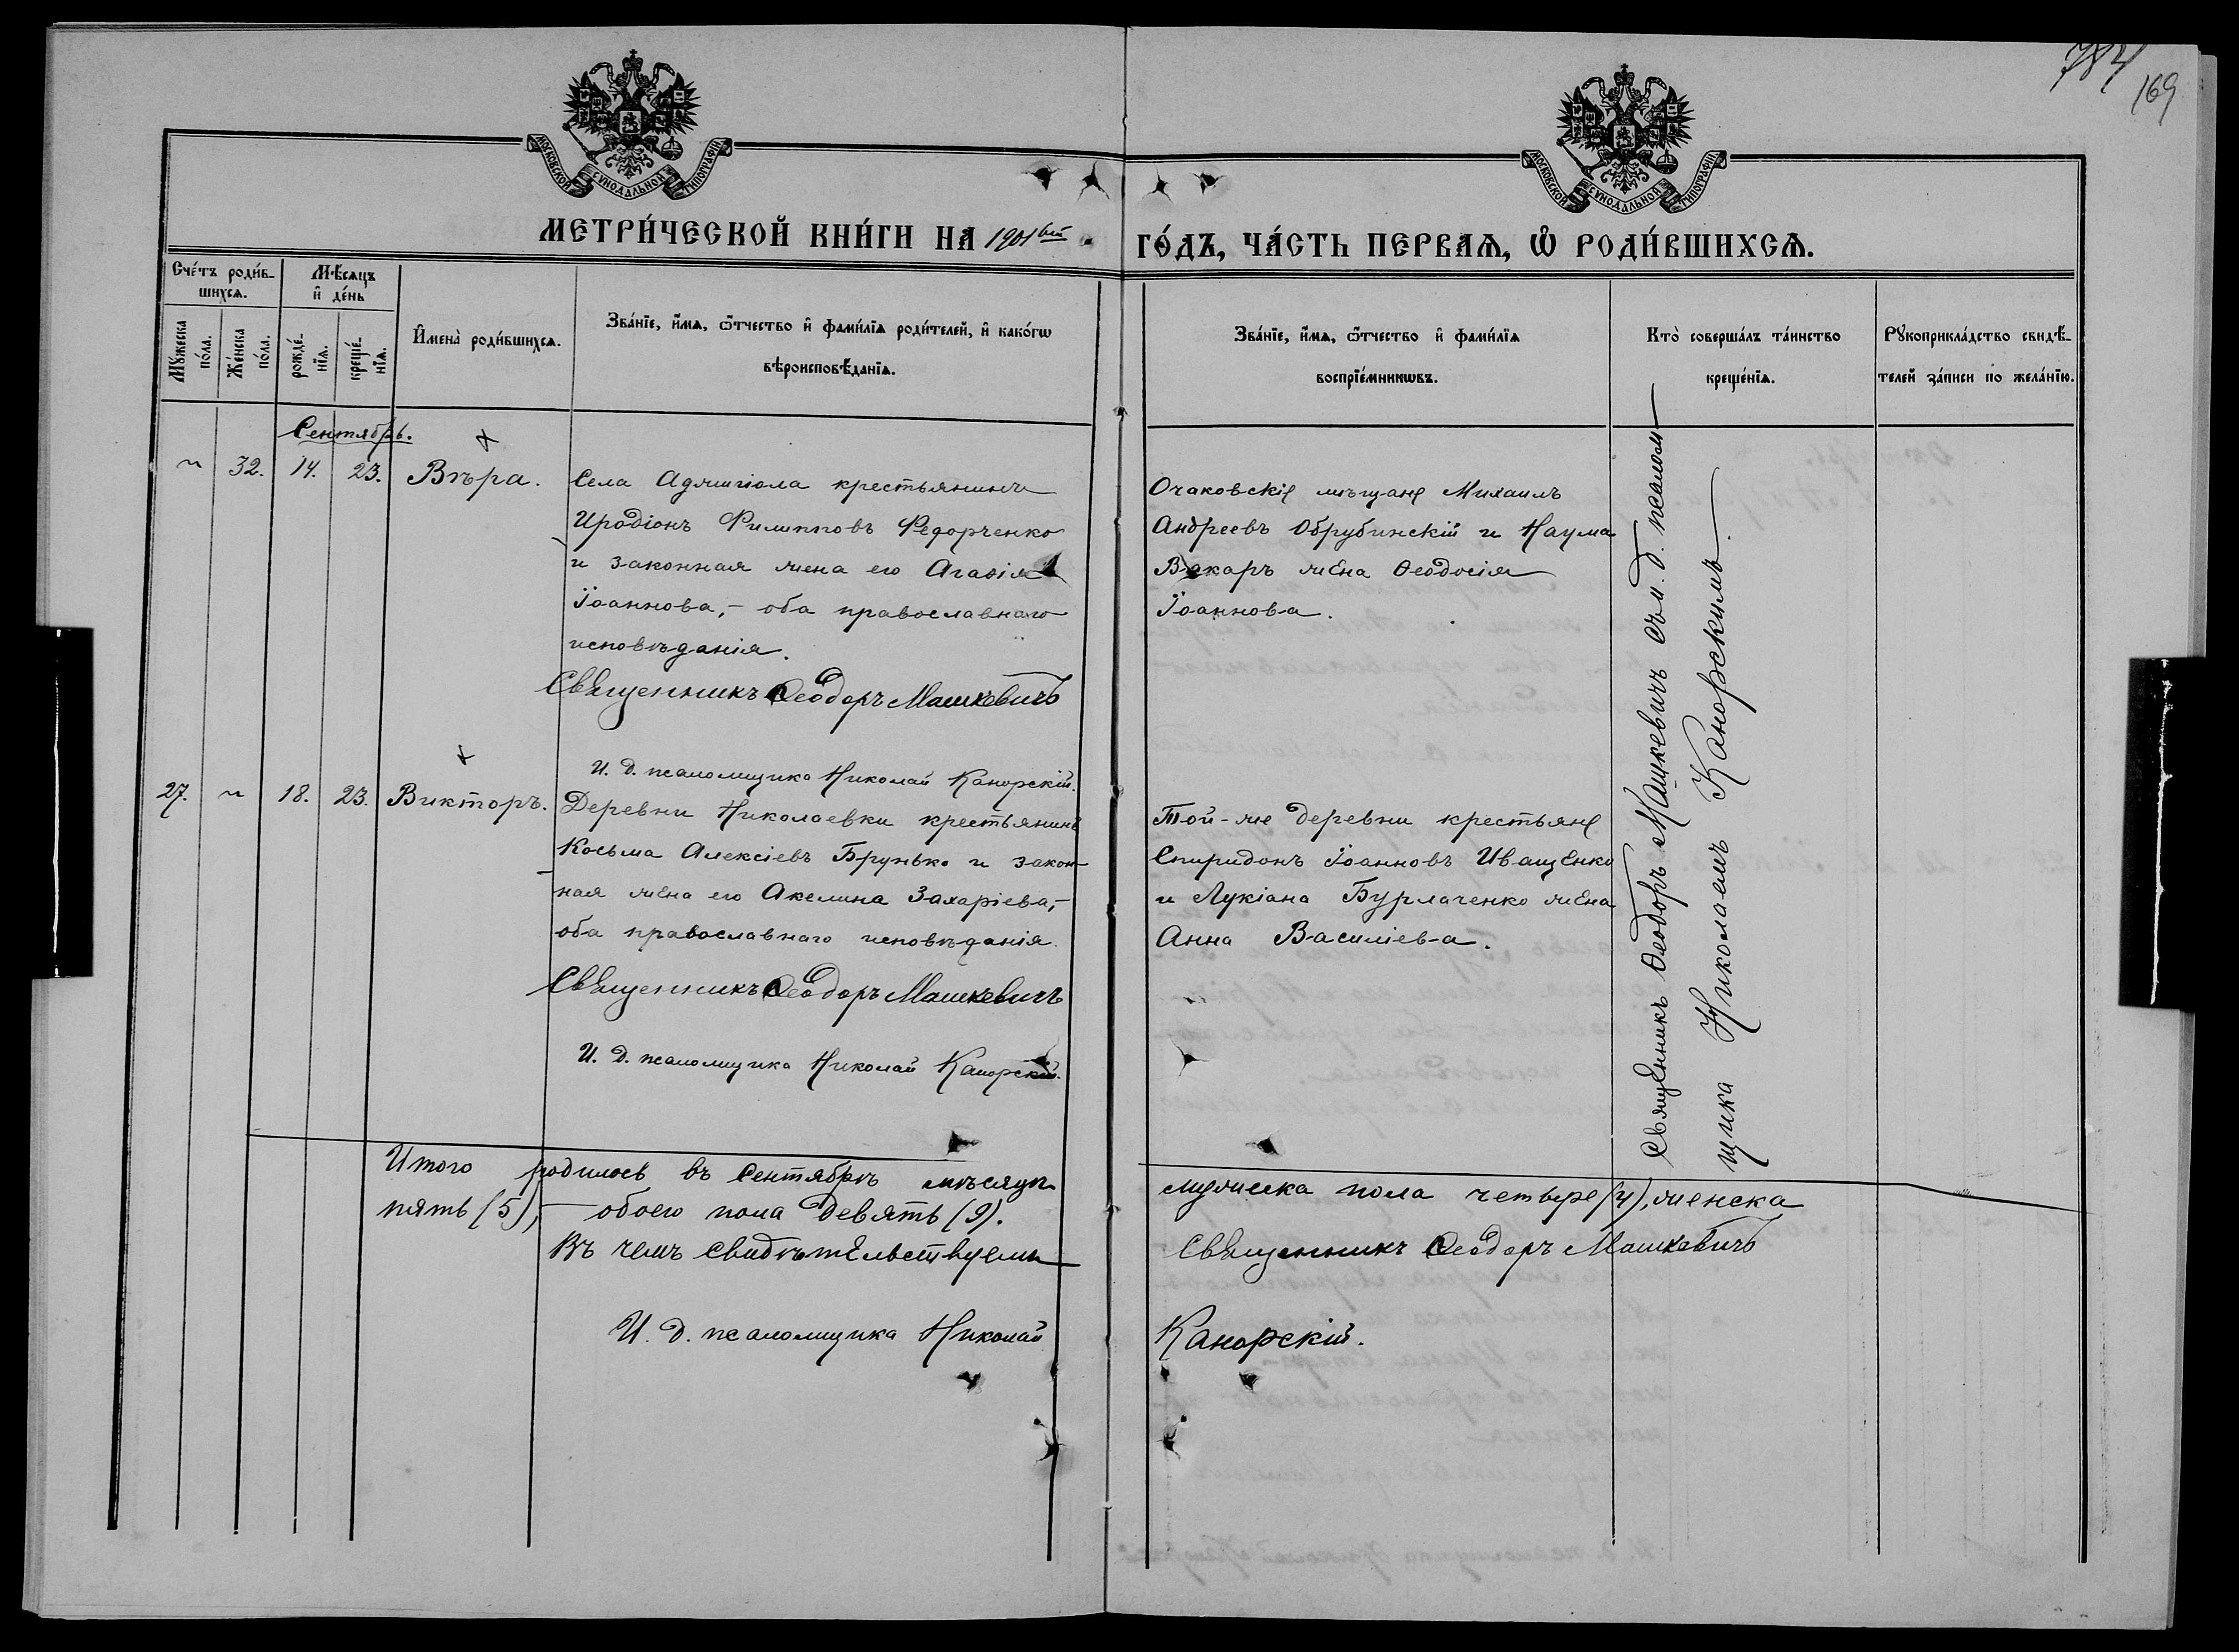 784
169
МОСКОВСКОЙ СѴНОДАЛЬНОЙ ТИПОГРАФІИ
МОСКОВСКОЙ СѴНОДАЛЬНОЙ ТИПОГРАФІИ
МЕТРИ́ЧЕСКОЙ КНИ́ГИ НА 1901вый ГО́ДЪ, ЧА́СТЬ ПЕ́РВАѦ, Ѡ҆ РОДИ́ВШИХСѦ.
Сче́тъ роди́в-
шихсѧ.
Мѣ́сяцъ
и҆ де́нь
Мꙋ́жеска
по́ла.
Же́нска
по́ла.
рожде́-
нїѧ.
креще́-
нїѧ.
И҆мена̀ роди́вшихсѧ.
Зва́нїе, и҆́мѧ, ѻ҆́тчество и҆ фами́лїѧ роди́телей, и҆ како́гѡ
вѣроисповѣ́данїѧ.
Зва́нїе, и҆́мѧ, ѻ҆́тчество и҆ фами́лїѧ
воспрїе́мникѡвъ.
Кто̀ соверша́лъ та́инство
креще́нїѧ.
Рꙋкоприкла́дство свидѣ́-
телей за́писи по жела́нїю.
Сентябрь.
~ 32. 14. 23. Вѣра.
Села Аджигіола крестьянинъ
Иродіонъ Филипповъ Федорченко
и законная жена его Агафія
Іоаннова, – оба православнаго
исповѣданія.
Священникъ Ѳеодоръ Машкевичъ
И. д. псаломщика Николай Канорскій.
Очаковскіе мѣщане Михаилъ
Андреевъ Обрубинскій и Наума
Вакаръ жена Ѳеодосія
Іоаннова.
27. ~ 18. 23. Викторъ.
Деревни Николаевки крестьянинъ
Косьма Алексіевъ Брунько и закон-
ная жена его Акелина Захаріева, –
оба православнаго исповѣданія.
Священникъ Ѳеодоръ Машкевичъ
И. д. псаломщика Николай Канорскій.
Той-же деревни крестьяне
Спиридонъ Іоанновъ Иващенко
и Лукіана Бурлаченко жена
Анна Василіева.
Священникъ Ѳеодоръ Машкевичъ съ и. д. псалом-
щика Николаемъ Канорскимъ.
Итого родилось въ Сентябрѣ мѣсяцѣ мужеска пола четыре (4), женска
пять (5), – обоего пола девять (9).
Въ чемъ свидѣтельствуемъ Священникъ Ѳеодоръ Машкевичъ
И. д. псаломщика Николай Канорскій.